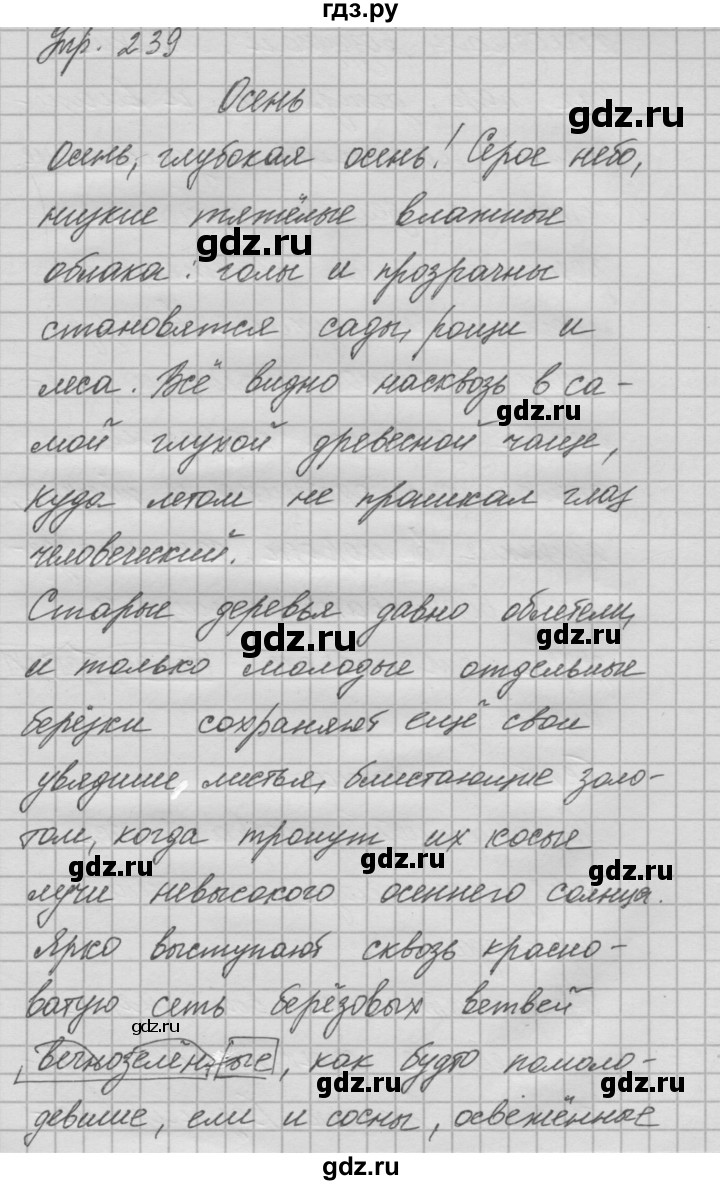 гдз.ру
Упр. 239
Осень
gdz.ru
Осень, глубокая осень! Серое небо,
низкие тяжёлые влажные
gdz.ru
облака: голы и прозрачны
становятся сады, рощи и
леса. Всё видно насквозь в са-
gdz.ru
мой глухой древесной чаще,
куда летом не проникал глаз
человеческий.
Старые деревья давно облетели,
gdz.ru
gdz.ru
и только молодые отдельные
берёзки сохраняют ещё свои
увядшие листья, блистающие золо-
том, когда тронут их косые
gdz.ru
gdz.ru
gdz.ru
лучи невысокого осеннего солнца.
Ярко выступают сквозь красно-
ватую сеть берёзовых ветвей
gdz.ru
вечнозелёные, как будто помоло-
gdz.ru
gdz.ru
девшие, ели и сосны, освежённые
gdz.ru